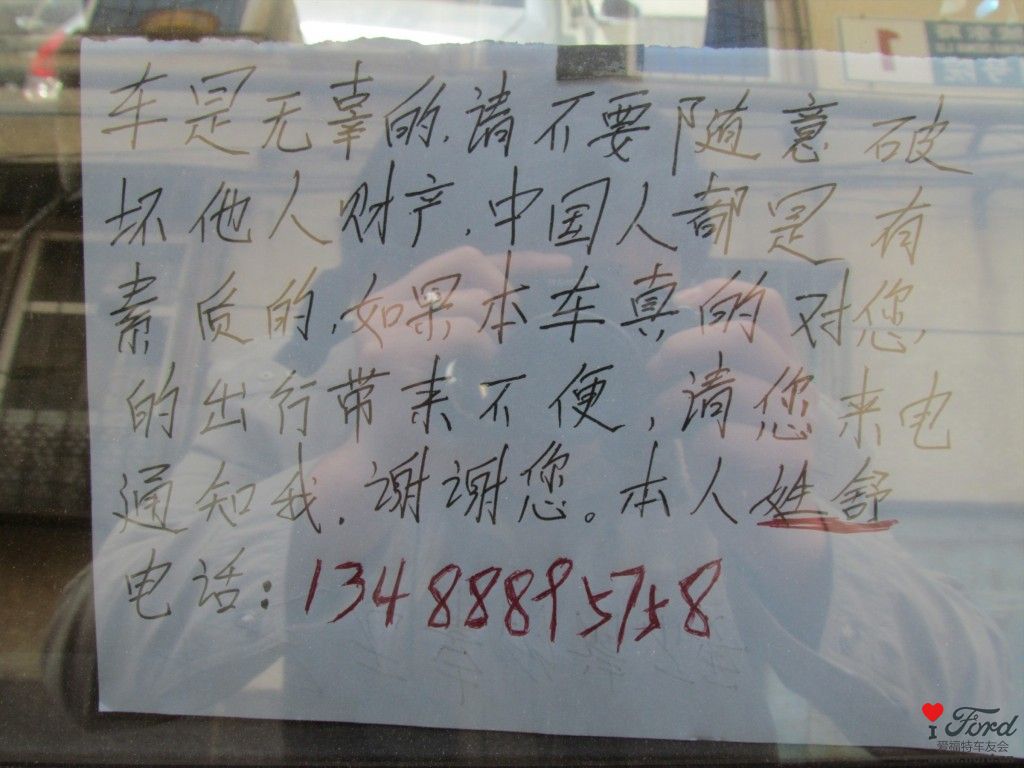 车是无辜的.请不要随意破
坏他人财产.中国人都是有
素质的.如果本车真的对您
的出行带来不便,请您来电
通知我.谢谢您。本人姓舒
电话:13488895758
1
I Ford
爱福特车友会